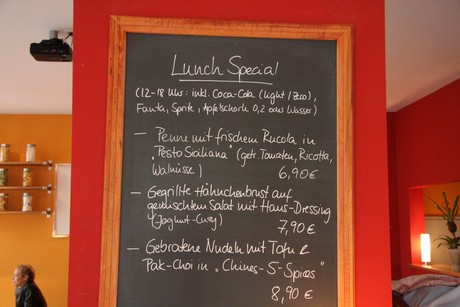 Lunch Special
(12-18 Uhr: inkl. Coca-Cola (light/Zero),
Fanta, Sprite, Apfelschorle 0,2 oder Wasser)
- Penne mit frischem Rucola in
"Pesto Siciliana" (getr. Tomaten, Ricotta,
Walnüsse) 6,90€
- Gegrillte Hähnchenbrust auf
gemischtem Salat mit Haus-Dressing
(Joghurt-Curry) 7,90€
- Gebratene Nudeln mit Tofu &
Pak-Choi in "Chines-5-Spices"
8,90€